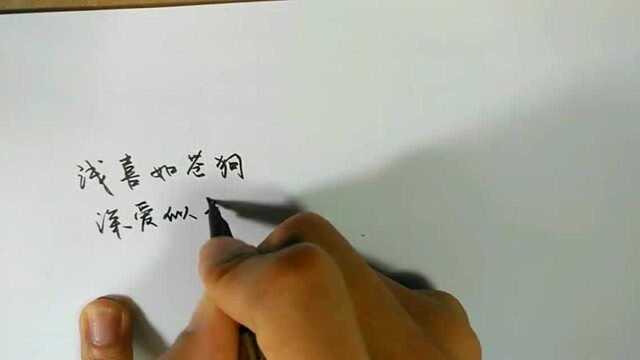 浅喜如苍狗
深爱似